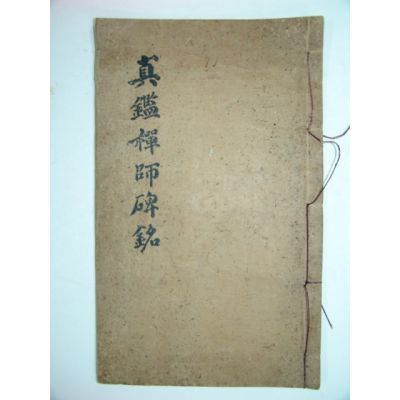 真鑑禪師碑銘